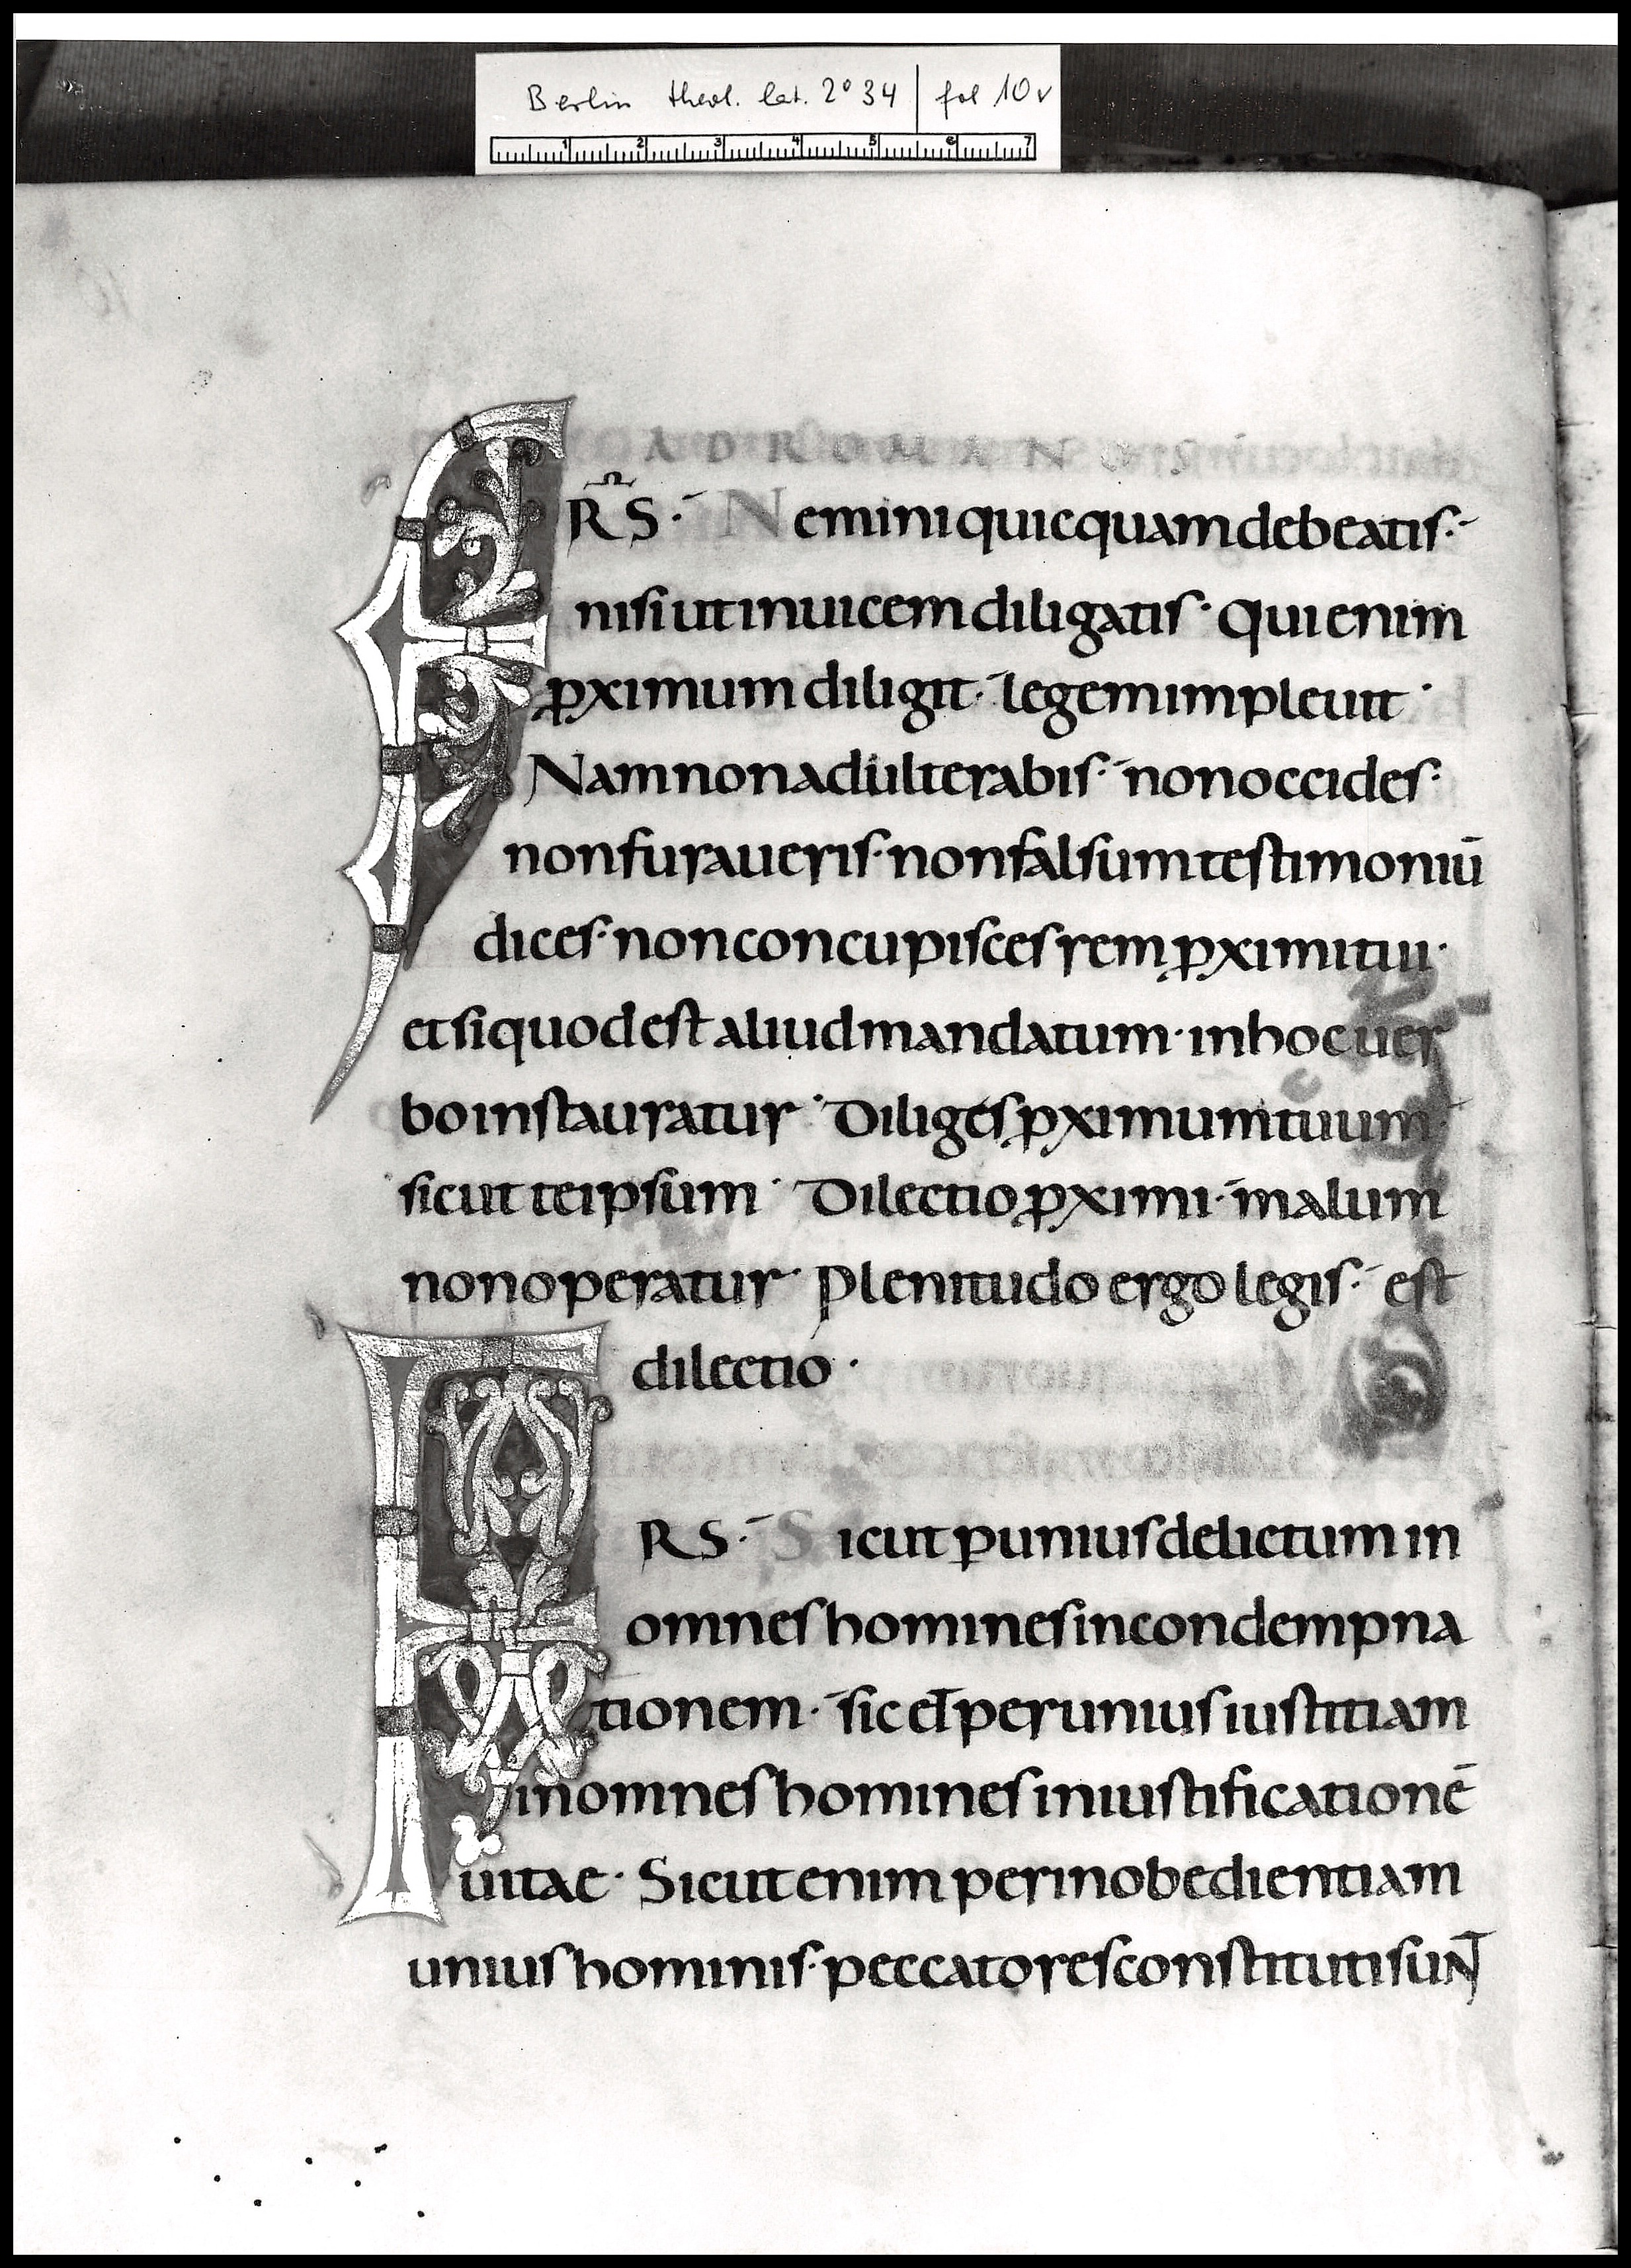 Berlin theol. lat. 2° 34 | fol 10v
1 2 3 4 5 6 7
AD ROMANOS
FR̅S· Nemini quicquam debeatis·
nisi ut inuicem diligatis· Qui enim
ꝓximum diligit· legem impleuit·
Nam non adulterabis· non occides·
non furaueris· non falsum testimoniū
dices· non concupisces rem ꝓximi tui·
et si quod est aliud mandatum· in hoc uer
bo instauratur· Diliges ꝓximum tuum
sicut te ipsum· Dilectio ꝓximi· malum
non operatur· Plenitudo ergo legis· est
dilectio·
FRS· Sicut ꝑ unius delictum in
omnes homines in condempna
tionem· sic et per unius iustitiam
in omnes homines in iustificationē
uitae· Sicut enim per inobedientiam
unius hominis· peccatores constituti sunt